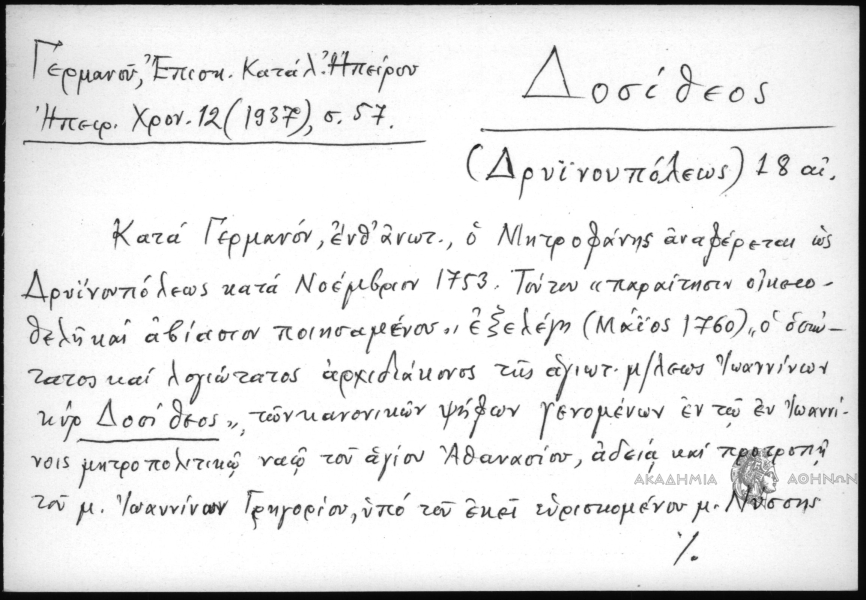 Γερμανοῦ, Ἐπισκ. Κατάλ. Ἠπείρου
Ἠπειρ. Χρον. 12 (1937), σ. 57.
Δοσίθεος
(Δρυϊνουπόλεως) 18 αἰ.
Κατά Γερμανόν, ἔνθ' ἀνωτ., ὁ Μητροφάνης ἀναφέρεται ὡς
Δρυϊνουπόλεως κατά Νοέμβριον 1753. Τούτου «παραίτησιν οἰκειο-
θελῆ καί ἀβίαστον ποιησαμένου» ἐξελέγη (Μάϊος 1760) «ὁ ὁσιώ-
τατος καί λογιώτατος ἀρχιδιάκονος τῆς ἁγιωτ. μ/λεως Ἰωαννίνων
κύρ Δοσίθεος», τῶν κανονικῶν ψήφων γενομένων ἐν τῷ ἐν Ἰωαννί-
νοις μητροπολιτικῷ ναῷ τοῦ ἁγίου Ἀθανασίου, ἀδείᾳ καί προτροπῇ
τοῦ μ. Ἰωαννίνων Γρηγορίου, ὑπό τοῦ ἐκεῖ εὑρισκομένου μ. Νύσσης
·/.
ΑΚΑΔΗΜΙΑ ΑΘΗΝΩΝ